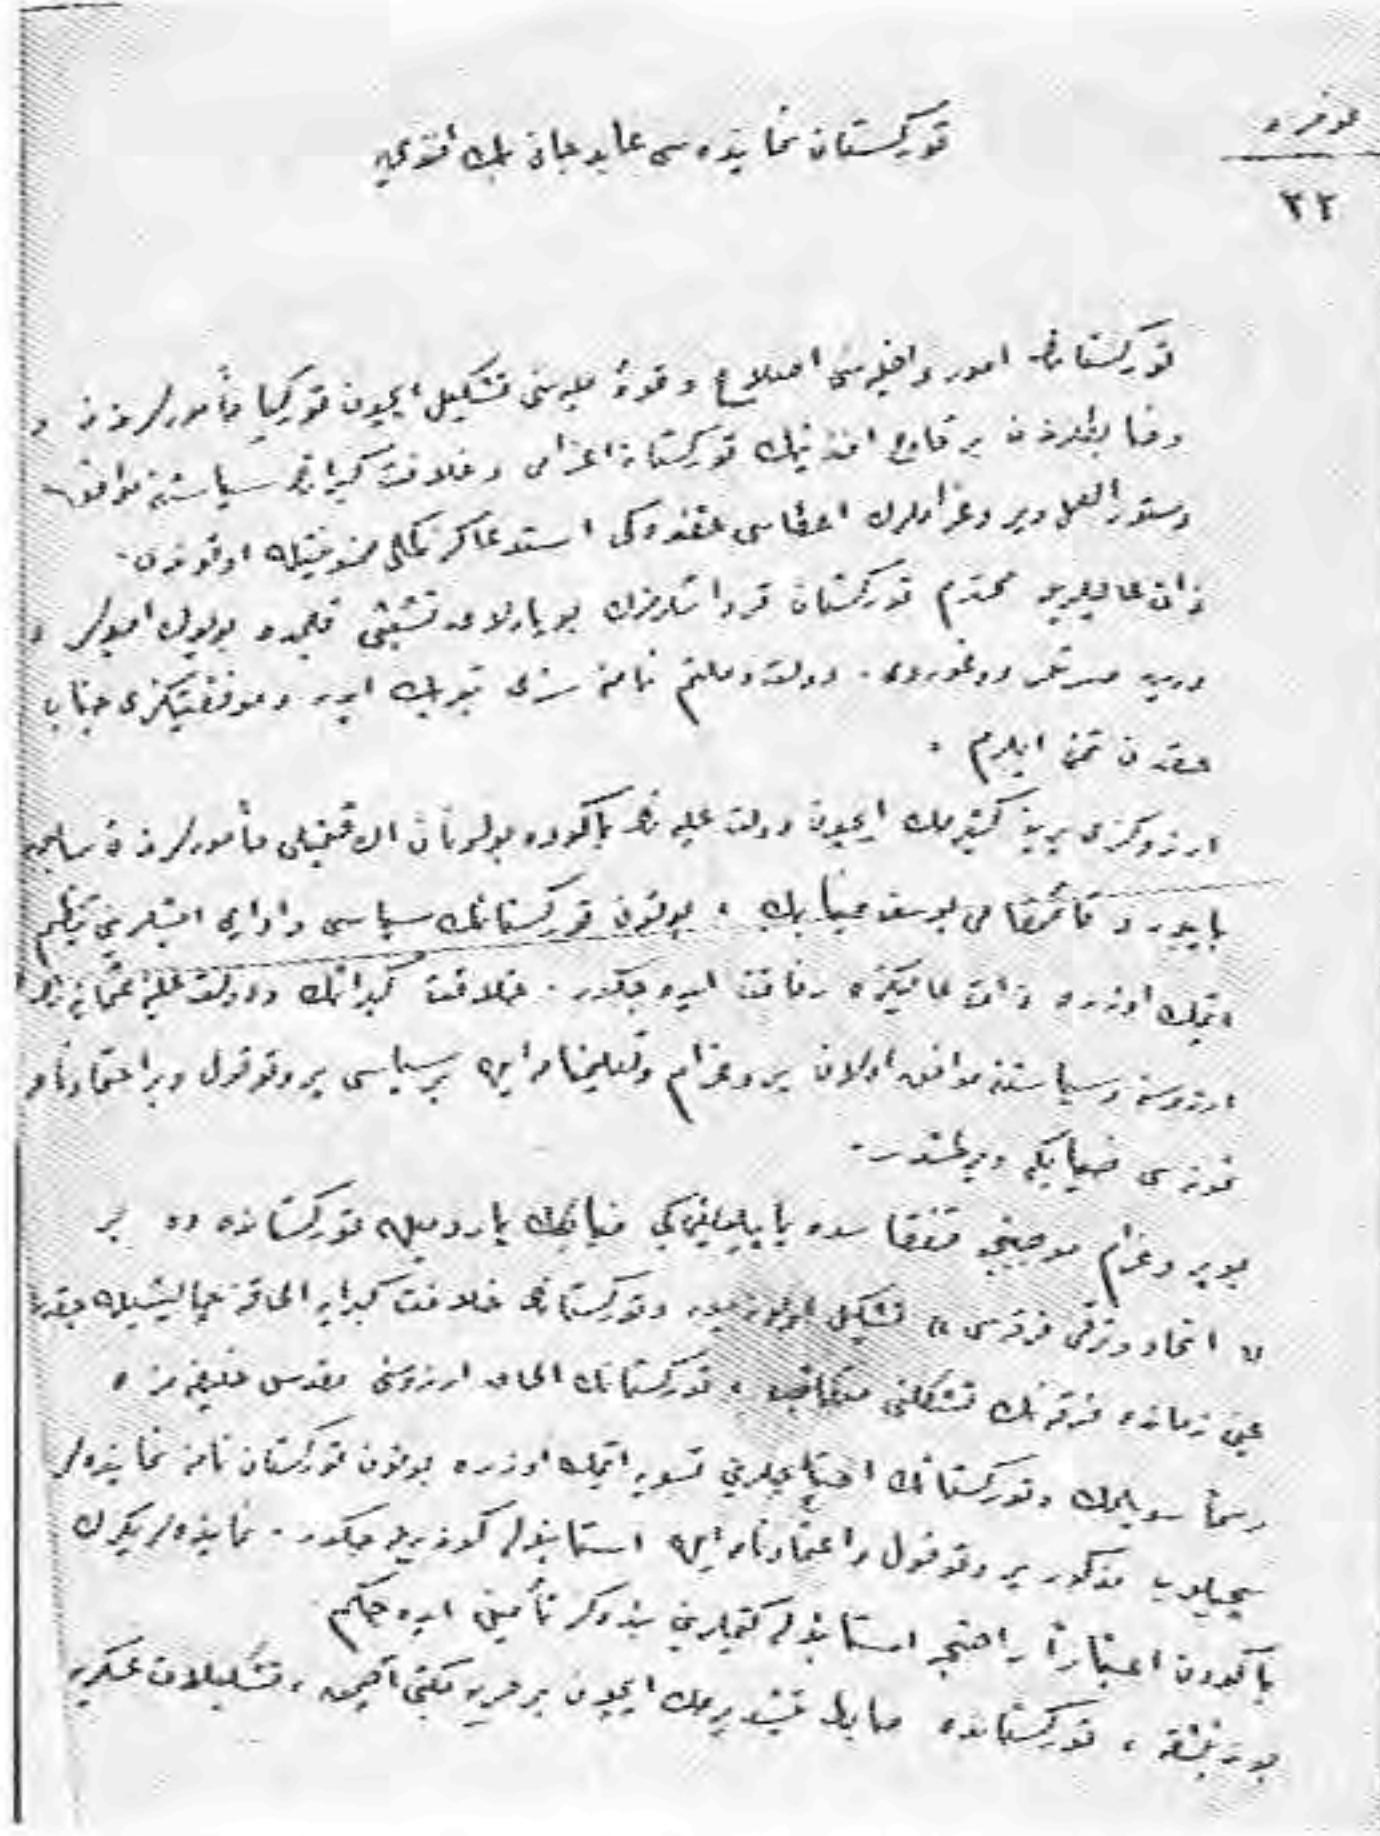 توركستان نماينده سى عابد جان بك افندى يه
٢٢
توركستانك امور داخليه سنى اصلاح و قوۀ مليه سنى تشكيل ايچون توركيا مأمورلرندن و
وضابطلردن بر قاچ افندينك توركستانه اعزامى و خلافت كبرانك سياستنه موافق
دستور العمل و پروغراملرك اعطاسى حقنده كى استدعاكز كمال ممنونيتله اوقوندى.
ذات عاليلريله محترم توركستان قرداشلرمزك بو يارلاق تشبثى قلبمده بويوك اميدلر و
درين مسرتلر دوغوردى. دولت و ملتم نامنه سزى تبريك ايدر و موفقيتكزى جناب
حقدن تمنى ايلرم.
ارزوكزى يرينه كتيرمك ايچون دولت عليه نك باكوده بولونان ال قيمتلى مأمورلرندن
بايبورد قائممقامى يوسف ضيا بك، بوتون توركستانك سياسى و ادارى ايشلرينى تنظيم
ايتمك اوزره ذات عاليكزه رفاقت ايده جكدر. خلافت كبرانك و دولت عليۀ عثمانيه نك
ارزوسنه و سياستنه موافق اولان پروغرام و تعليمنامه ايله بر سياسى پروتوقول و بر اعتمادنامه
ضيا بكه ويرلمشدر.
بو پروغرام موجبنجه قفقاسده ياپيلديغى كبى ضيا بكك يارديميله توركستانده ده بر
« اتحاد و ترقى فرقه سى » تشكيل و توركستانك خلافت كبرايه الحاقنه چاليشيله جقدر
عين زمانده فرقه نك تشكلنى متعاقب، توركستانك الحاق ارزوسنى مقدس خليفه مزه
رسماً سويلمك و توركستانك احتياجلرينى تسويه ايتمك اوزره بوتون توركستان نامنه نماينده لر
سچيلوب مذكور پروتوقول و اعتمادنامه ايله استانبوله كوندريله جكدر. نماينده لريكزك
باكودن اعتباراً راحتجه استانبوله كتملرينى بنده كز تأمين ايده جكم
بوندن بشقه، توركستانده ضابط يتيشديرمك ايچون بر حربيه مكتبى آچمق، تشكيلات عسكريه